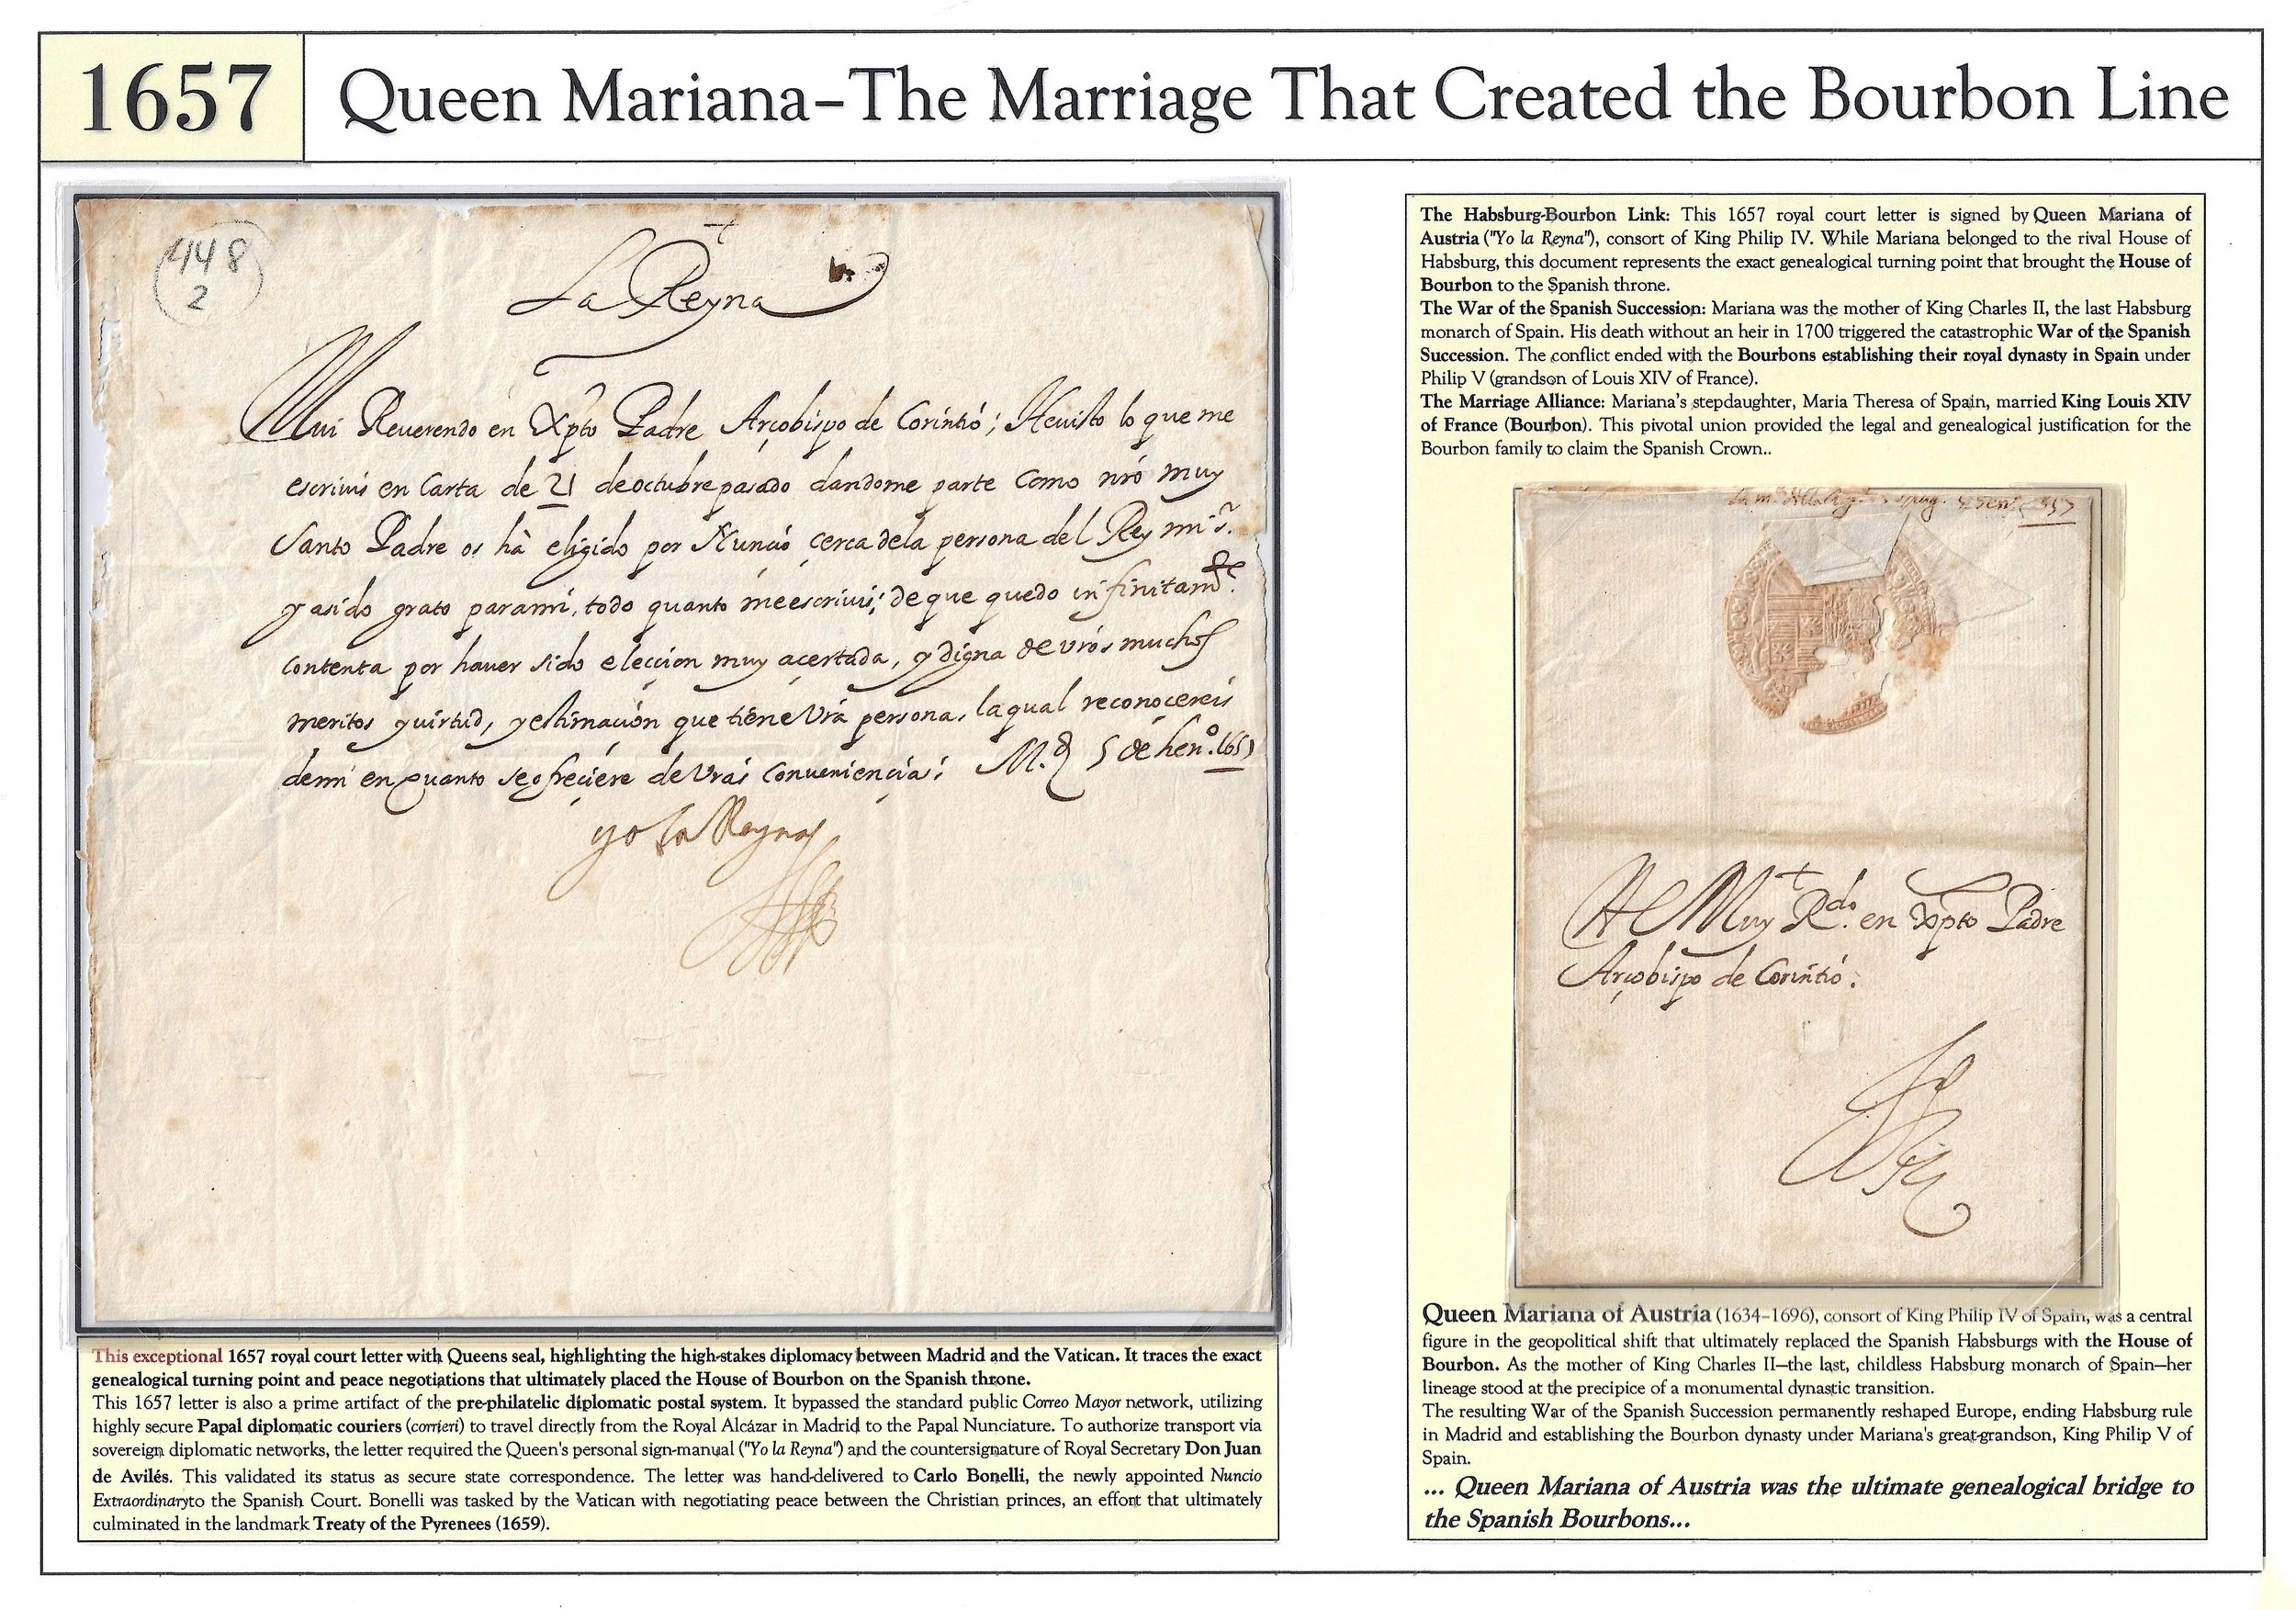 1657
Queen Mariana–The Marriage That Created the Bourbon Line
448
2
La Reyna
Mui Reuerendo en Xpto Padre Arçobispo de Corintió; He uisto lo que me
escriuis en Carta de 21 de octubre pasado dandome parte como nrō muy
Santo Padre os hà eligido por Nunció çerca dela persona del Rey mi sr.
y asido grato parami, todo quanto me escriuis; de que quedo infinitamte.
contenta por hauer sido elecçion muy açertada, y digna de vrōs muchos
meritos y uirtud, y estimaçión que tiene Vrā persona, la qual reconoçereis
demi en quanto se ofreçiere de Vrās Conueniençias; M.d 5 de hen.o 1657
yo la Reyna
This exceptional 1657 royal court letter with Queens seal, highlighting the high-stakes diplomacy between Madrid and the Vatican. It traces the exact
genealogical turning point and peace negotiations that ultimately placed the House of Bourbon on the Spanish throne.
This 1657 letter is also a prime artifact of the pre-philatelic diplomatic postal system. It bypassed the standard public Correo Mayor network, utilizing
highly secure Papal diplomatic couriers (corrieri) to travel directly from the Royal Alcázar in Madrid to the Papal Nunciature. To authorize transport via
sovereign diplomatic networks, the letter required the Queen's personal sign-manual ("Yo la Reyna") and the countersignature of Royal Secretary Don Juan
de Avilés. This validated its status as secure state correspondence. The letter was hand-delivered to Carlo Bonelli, the newly appointed Nuncio
Extraordinaryto the Spanish Court. Bonelli was tasked by the Vatican with negotiating peace between the Christian princes, an effort that ultimately
culminated in the landmark Treaty of the Pyrenees (1659).
The Habsburg-Bourbon Link: This 1657 royal court letter is signed by Queen Mariana of
Austria ("Yo la Reyna"), consort of King Philip IV. While Mariana belonged to the rival House of
Habsburg, this document represents the exact genealogical turning point that brought the House of
Bourbon to the Spanish throne.
The War of the Spanish Succession: Mariana was the mother of King Charles II, the last Habsburg
monarch of Spain. His death without an heir in 1700 triggered the catastrophic War of the Spanish
Succession. The conflict ended with the Bourbons establishing their royal dynasty in Spain under
Philip V (grandson of Louis XIV of France).
The Marriage Alliance: Mariana's stepdaughter, Maria Theresa of Spain, married King Louis XIV
of France (Bourbon). This pivotal union provided the legal and genealogical justification for the
Bourbon family to claim the Spanish Crown..
Al Muy Rdo. en Xpto Padre
Arçobispo de Corintió.
Queen Mariana of Austria (1634–1696), consort of King Philip IV of Spain, was a central
figure in the geopolitical shift that ultimately replaced the Spanish Habsburgs with the House of
Bourbon. As the mother of King Charles II—the last, childless Habsburg monarch of Spain—her
lineage stood at the precipice of a monumental dynastic transition.
The resulting War of the Spanish Succession permanently reshaped Europe, ending Habsburg rule
in Madrid and establishing the Bourbon dynasty under Mariana's great-grandson, King Philip V of
Spain.
... Queen Mariana of Austria was the ultimate genealogical bridge to
the Spanish Bourbons...